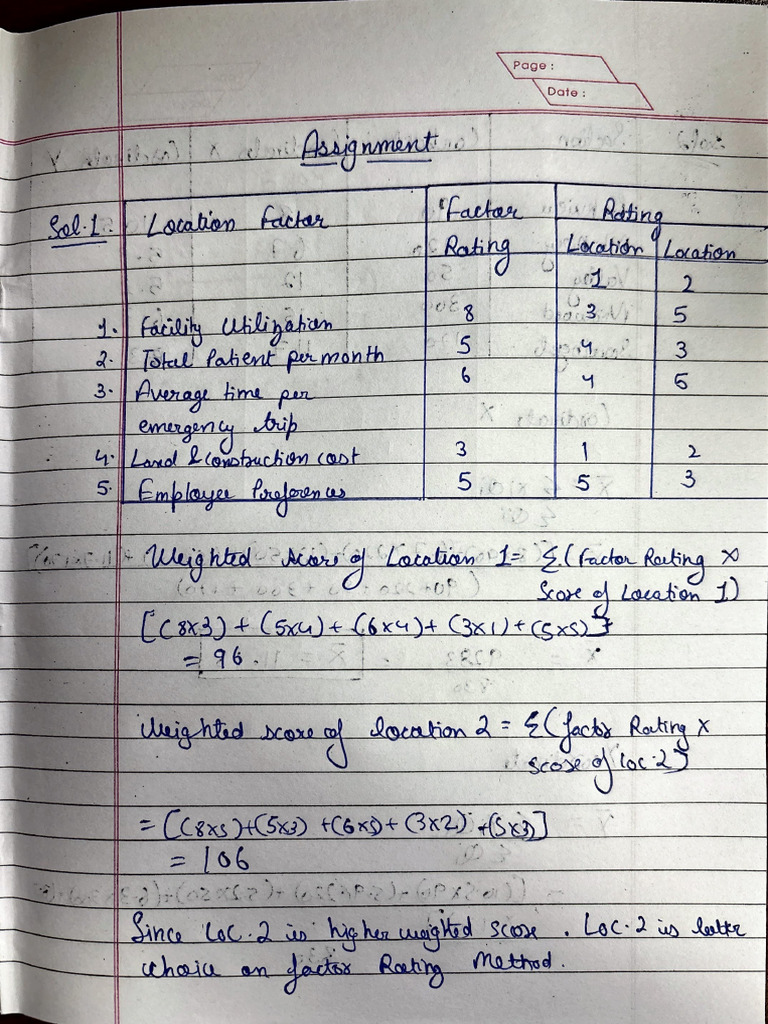 Page :
Date :
Assignment
Sol.1. Location Factor Factor Rating
Rating Location Location
1 2
1. Facility Utilization 8 3 5
2. Total Patient per month 5 4 3
3. Average time per 6 4 5
emergency trip
4. Land & construction cost 3 1 2
5. Employee Preferences 5 5 3
Weighted score of Location 1 = Σ(Factor Rating ×
Score of Location 1)
[(8×3) + (5×4) + (6×4) + (3×1) + (5×5)]
= 96.
Weighted score of location 2 = Σ(factor Rating ×
score of Loc.2)
= [(8×5)+(5×3) +(6×5)+(3×2) +(5×3)]
= 106
Since Loc.2 is higher weighted score. Loc.2 is better
choice on factor Rating Method.